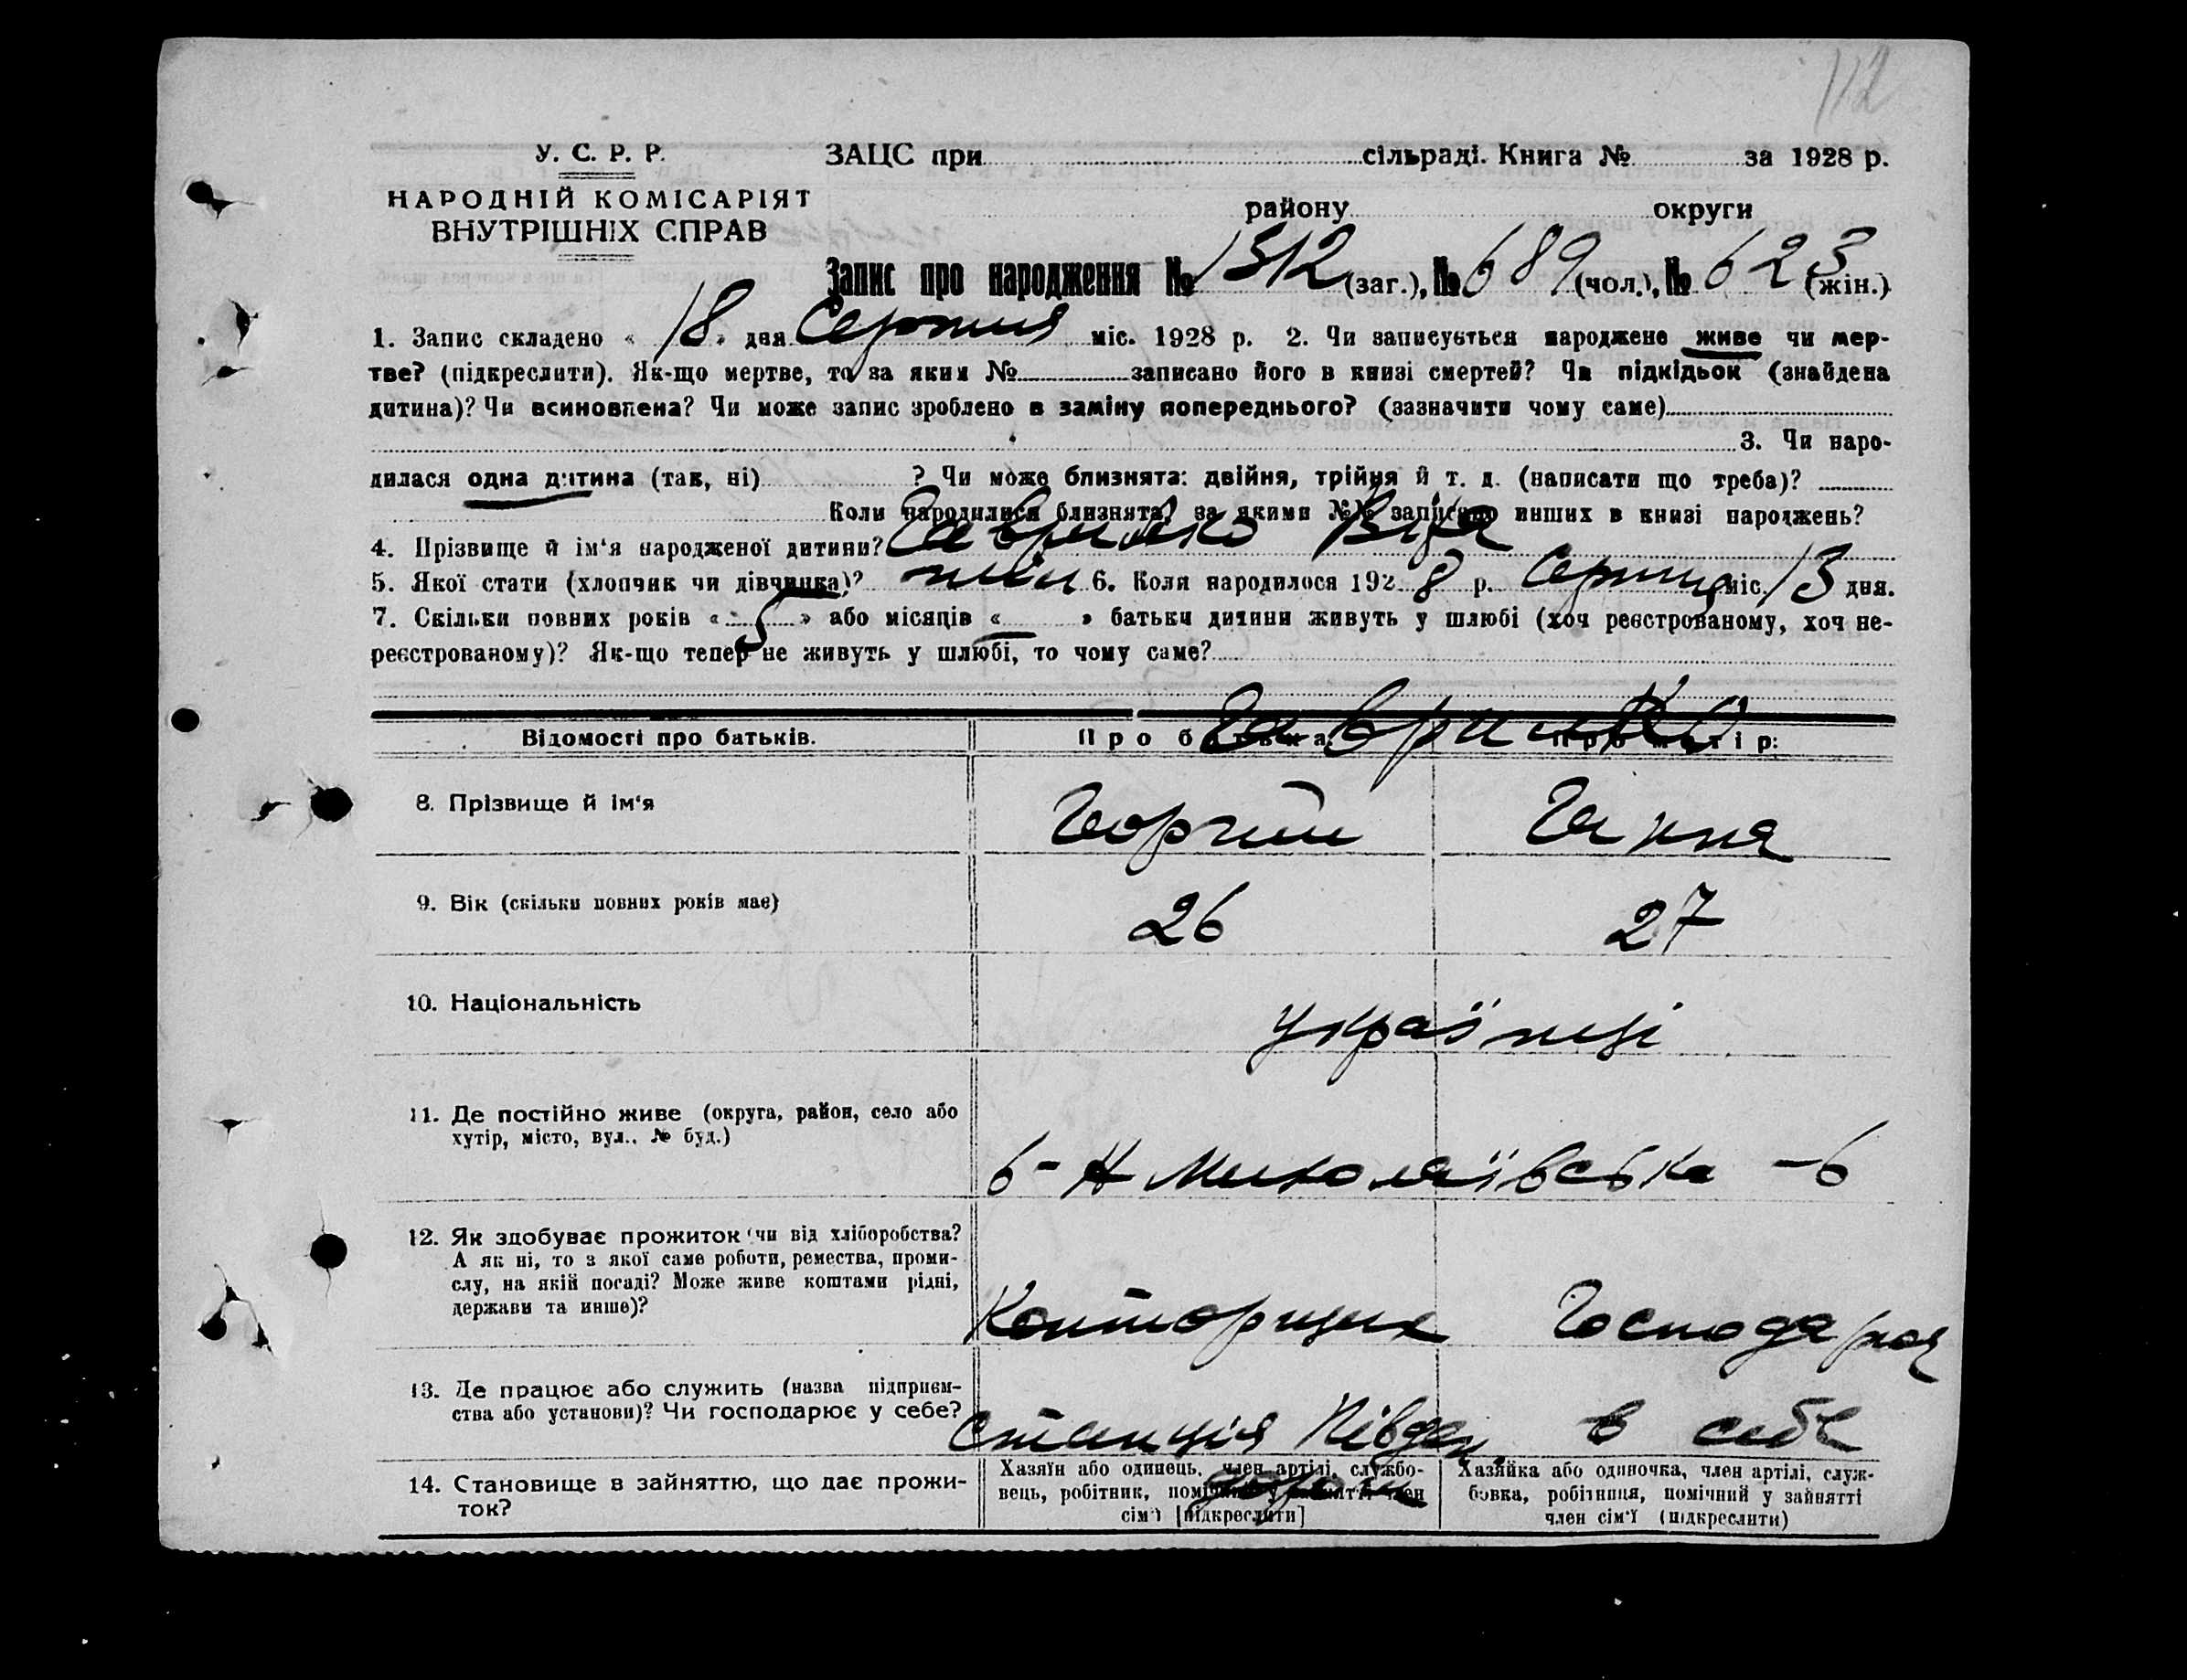 112
У. С. Р. Р.
НАРОДНІЙ КОМІСАРІЯТ
ВНУТРІШНІХ СПРАВ
ЗАЦС при сільраді. Книга № за 1928 р.
району округи
Запис про народження № 1312 (заг.), № 689 (чол.), № 623 (жін.)
1. Запис складено « 18 » дня Серпня міс. 1928 р. 2. Чи записується народжене живе чи мер-
тве? (підкреслити). Як-що мертве, то за яким № записано його в книзі смертей? Чи підкідьок (знайдена
дитина)? Чи всиновлена? Чи може запис зроблено в заміну попереднього? (зазначити чому саме)
3. Чи наро-
дилася одна дитина (так, ні) ? Чи може близнята: двійня, трійня й т. д. (написати що треба)?
Коли народилися близнята, за якими №№ записано инших в книзі народжень?
4. Прізвище й ім'я народженої дитини? Гаврилко
5. Якої стати (хлопчик чи дівчинка)? жін 6. Коли народилося 1928 р. Серпня міс. 13 дня.
7. Скільки повних років « 5 » або місяців « » батьки дитини живуть у шлюбі (хоч реєстрованому, хоч не-
реєстрованому)? Як-що тепер не живуть у шлюбі, то чому саме?
Відомості про батьків. Про батька Про матір:
Гаврилко
8. Прізвище й ім'я Георгий Ганна
9. Вік (скільки повних років має) 26 27
10. Національність українці
11. Де постійно живе (округа, район, село або
хутір, місто, вул., № буд.) 6-Н Миколаївська -6
12. Як здобуває прожиток чи від хліборобства?
А як ні, то з якої саме роботи, ремества, проми-
слу, на якій посаді? Може живе коштами рідні,
держави та инше)? Конторщик Господарка
13. Де працює або служить (назва підприєм-
ства або установи)? Чи господарює у себе? Станція Півден в себе
14. Становище в зайняттю, що дає прожи-
ток?
Хазяїн або одинець, член артілі, службо-
вець, робітник, помічний у зайнятті член
сім'ї [підкреслити]
Хазяйка або одиночка, член артілі, служ-
бовка, робітниця, помічний у зайнятті
член сім'ї (підкреслити)